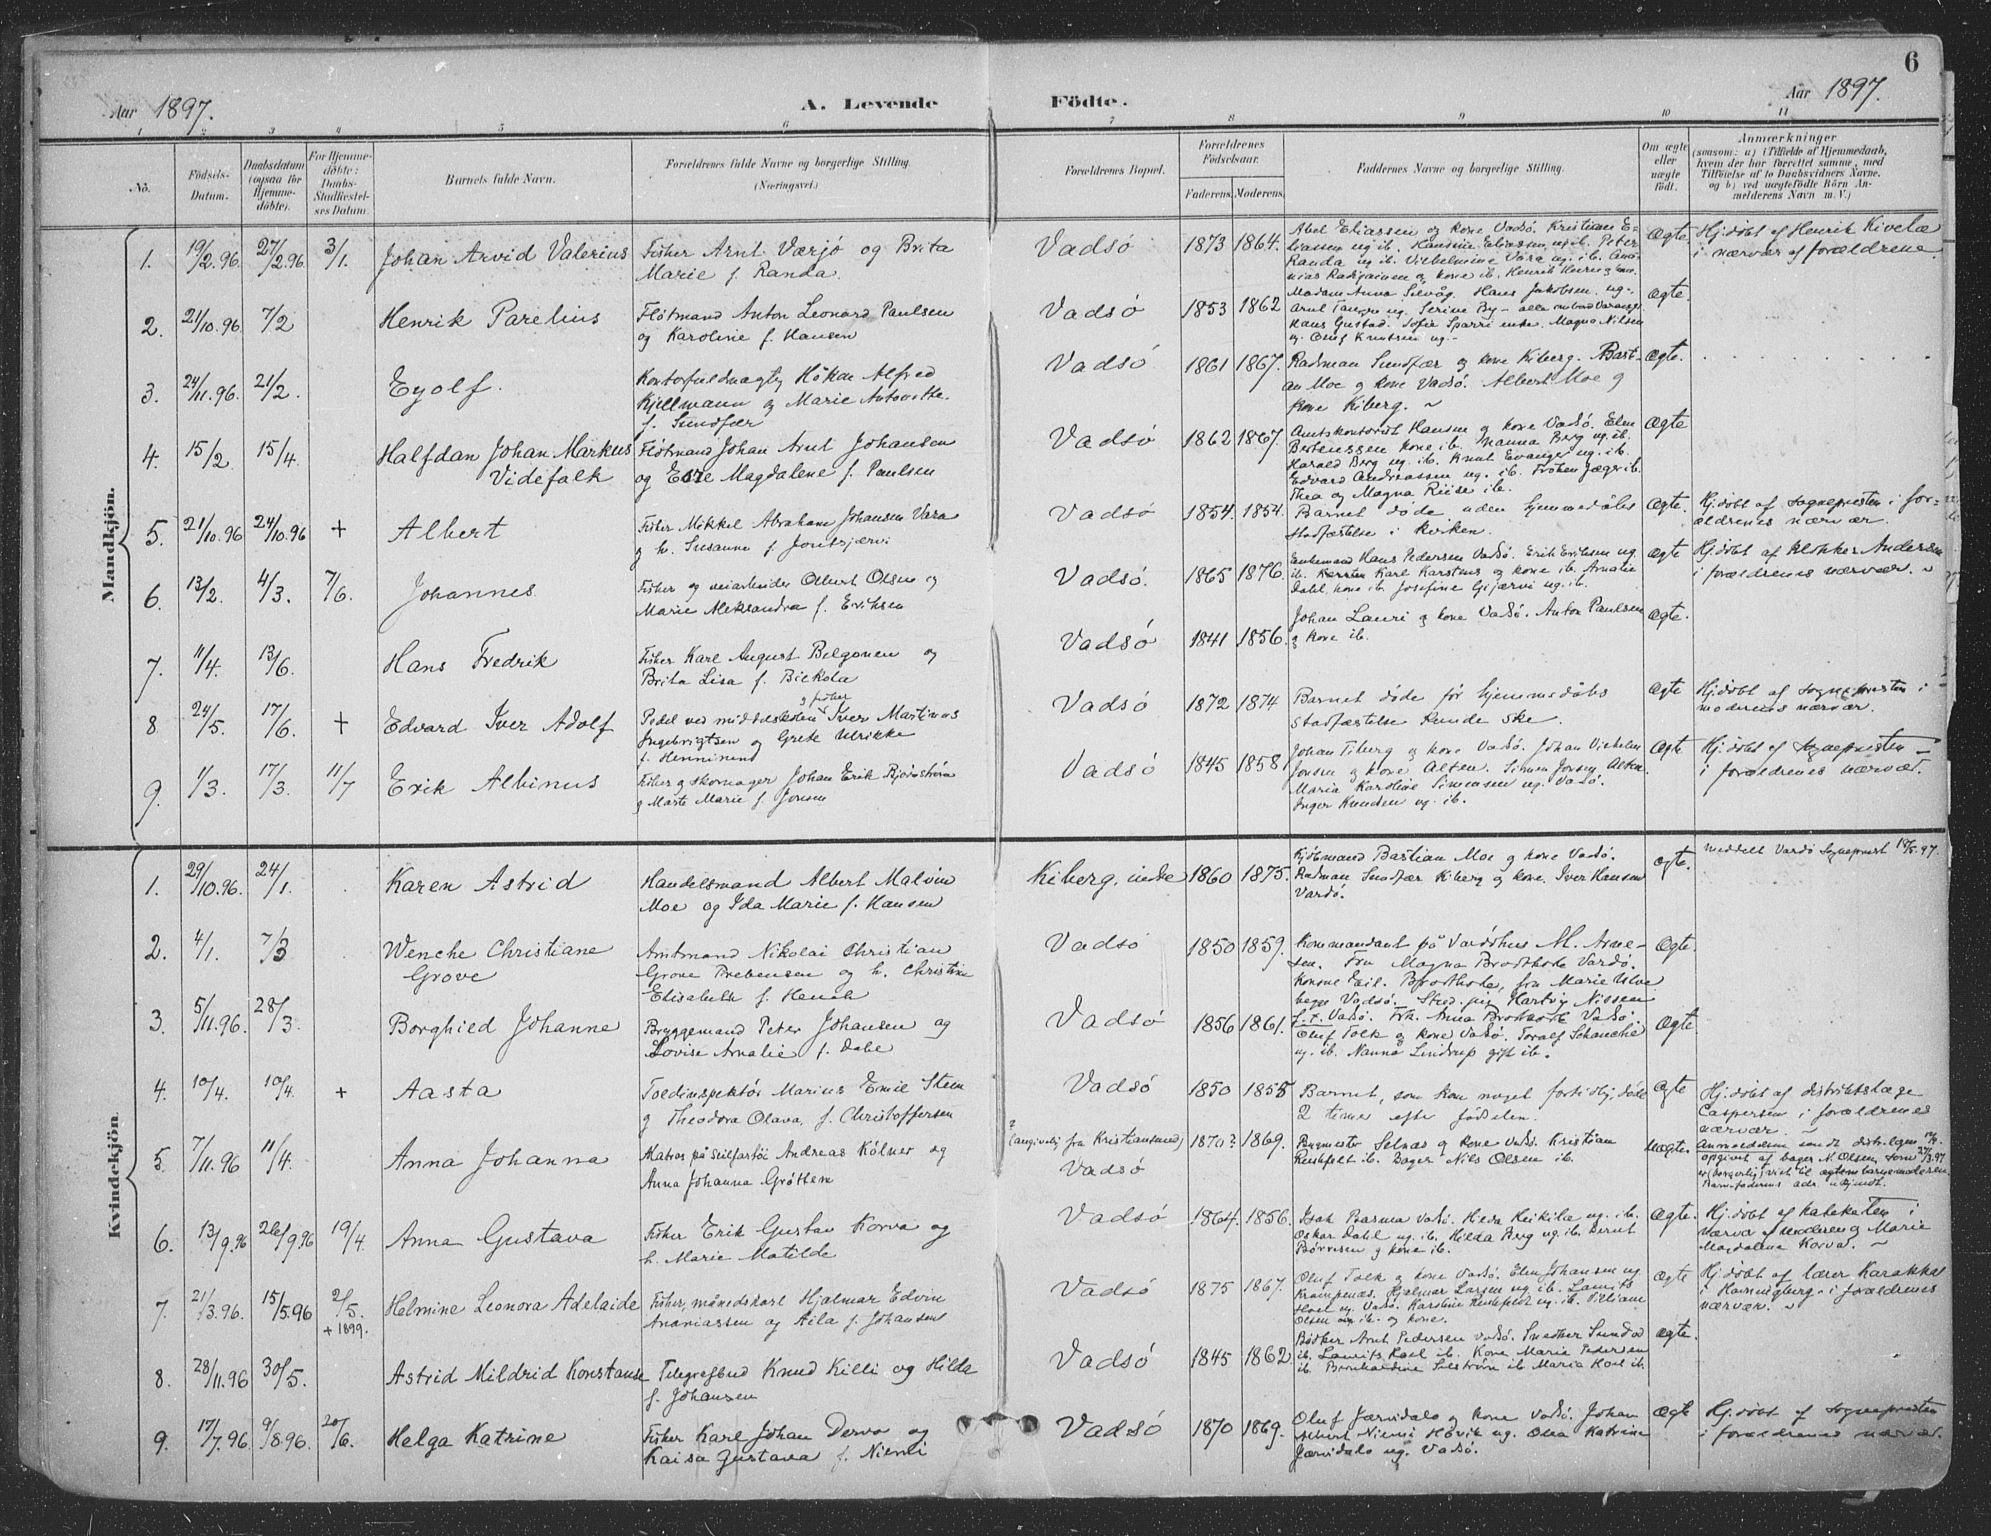 6
Aar 1897.
A. Levende
Födte.
Aar 1897.
1 2 3 4 5 6 7 8 9 10 11
No.
Födsels-
Datum.
Daabsdatum
(ogsaa for
Hjemme-
döbte).
For Hjemme-
döbte:
Daabs-
Stadfæstel-
ses Datum.
Barnets fulde Navn.
Forældrenes fulde Navne og borgerlige Stilling.
(Næringsvei.)
Forældrenes Bopæl.
Forældrenes
Födselsaar.
Faderens.
Moderens.
Faddernes Navne og borgerlige Stilling.
Om ægte
eller
uægte
födt.
Anmærkninger
(saasom: a) i Tilfælde af Hjemmedaab,
hvem der har forrettet samme, med
Tilföielse af to Daabsvidners Navne,
og b) ved uægtefödte Börn An-
melderens Navn m. V.)
Mandkjön.
1. 19/2.96. 27/2.96 3/1. Johan Arvid Valerius
Fisker Arnt Værjö og Brita
Marie f. Randa.
Vadsö 1873 1864.
Abel Eliassen og kone Vadsö. Kristian E-
Ægte.
Hj.döbt af Henrik Kivelæ
i nærvær af forældrene.
2. 21/10.96. 7/2 Henrik Parelius
Flötmand Anton Leonard Paulsen
og Karoline f. Hansen
Vadsö 1853 1862
Madam Anna Selvåg. Hans Jakobsen ug.
Ægte.
3. 24/11.96. 21/2. Eyolf.
Kontorfuldmægtig Håkon Alfred
Kjellmann og Marie Antonette.
f. Sundfær
Vadsö 1861 1867.
Radman Sundfær og kone Kiberg. Basti-
an Moe og kone Vadsö. Albert Moe og
kone Kiberg. ~
Ægte.
4. 15/2 15/4. Halfdan Johan Markus
Videfalk
Flötmand Johan Arnt Johansen
og Magdalene f. Paulsen
Vadsö 1862 1867.
Amtskontorist Hansen og kone Vadsö. Elen
Berteussen kone ib. Nanna Berg ug. ib.
Harald Berg ug. ib. Knut Evanger ug. ib.
Edvard Andreassen ug. ib. Fröken Jæger ib.
Thea og Magna Riise ib.
Ægte
5. 21/10.96 24/10.96 + Albert
Fisker Mikkel Abraham Johansen Vara
og h. Susanne f.
Vadsö 1854. 1854.
Barnet döde uden hjemmedåbs
stadfæstelse i kirken.
Ægte.
Hj.döbt af Sognepresten i for-
ældrenes nærvær.
6. 13/2. 4/3. 7/6. Johannes
Fisker og Albert Olsen og
Marie Aleksandra f. Eriksen
Vadsö. 1865 1876.
Hans Pedersen Vadsö. Erik Eriksen ug.
ib. Karl Karstens og kone ib. Amalie
Dahl, kone ib. Josefine ug. ib.
Ægte
Hj.döbt af klokker Andersen
i forældrenes nærvær. ~
7. 11/4. 13/6. Hans Fredrik
Fisker Karl August Belgonen og
Brita Lisa f. Biekola
Vadsö 1841 1856.
Johan Lauri og kone Vadsö. Anton Paulsen
og kone ib.
Ægte.
8 24/5. 17/6. + Edvard Iver Adolf
og fisker
Pedel ved middelskolen Iver Martinus
Ingebrigtsen og Grete Ulrikke
f. Henninend
Vadsö 1872 1874
Barnet döde för hjemmedåbs
stadfæstelse kunde ske.
Ægte
Hj.döbt af Sognepresten i
moderens nærvær.
9. 1/3. 17/3. 11/7 Erik Albinus
Fisker og skomager Johan Erik Björnström
og Marte Marie f. Jonsen
Vadsö 1845 1858
Johan Tiberg og kone Vadsö. Johan Vilhelm
Jonsen og kone Alten. Simon Jonsen Alten.
Maria Karoline Simonsen ug. Vadsö.
Inger Knudsen ug. ib.
Ægte
Hj.döbt af Sognepresten
i forældrenes nærvær.
Kvindekjön
1. 29/10.96. 24/1. Karen Astrid
Handelsmand Albert Malvin
Moe og Ida Marie f. Hansen
Kiberg, 1860 1875.
Kjöbmand Bastian Moe og kone Vadsö.
Radman Sundfær Kiberg og kone. Iver Hansen
Vardö.
Ægte.
meddelt Vardö Sogneprest 18/5.97.
2. 4/1. 7/3 Wenche Christiane
Grove
Amtmand Nikolai Christian
Grove Prebensen og h. Christine
Elisabeth f.
Vadsö 1850 1859.
Kommandant på Vardöhus M. Arne-
sen. Fru Magna Brodtkorb Vardö.
Konsul Brodtkorb, fru Marie Ulve
begge Vadsö. Stud. jur. Hartvig Nissen
Vadsö. Frk. Anna Brodtkorb Vadsö.
Ægte.
3. 5/11.96. 28/3. Borghied Johanne
Bryggemand Peter Johansen og
Lovise Amalie f. Dahl
Vadsö 1856 1861.
Oluf Tolk og kone Vadsö. Toralf Schanche
ug. ib. Nanna Lindrup gift ib.
Ægte.
4. 10/4. 10/4. + Aasta
Toldinspektör Marius Emil Steen
og Theodora Olava, f. Christoffersen
Vadsö 1850 1855
Barnet, som kom noget for tidlig, döde
2 timer efter födselen.
Ægte
Hj.döbt af distriktslæge
Caspersen i forældrenes
nærvær. ~
5. 7/11.96 11/4. Anna Johanna
Matros på seilfartöi Andreas Kölner og
Anna Johanna Gröttem
? (angivelig fra Kristiansund)
Vadsö
1870? 1869.
Bygmester Selnæs og kone Vadsö. Kristian
Renkfelt ib. Bager Nils Olsen ib.
Uægte.
opgivet af bager N. Olsen som
6. 13/9.96 26/9.96 19/4. Anna Gustava
Fisker Erik Gustav Korva og
h. Marie Matilde
Vadsö 1864. 1856.
Isak Parma Vadsö. Heda Heikila ug. ib.
Oskar Dahl ug. ib. Hilda Berg ug. ib. Bernt
Börresen og kone ib.
Ægte.
Hj.döbt af kateketen i
nærvær af moderen og Marie
Magdalena Korva. ~
7. 21/3.96. 15/5.96 2/5.
+ 1899.
Helmine Leonora Adelaide
Fisker, månedskarl Hjalmar Edvin
Ananiassen og Aila f. Johansen
Vadsö 1875 1867.
Oluf Tolk og kone Vadsö. Elen Johansen ug
Krampenæs. Hjalmar Larsen ug. ib. Laurits
Hoel ug. Vadsö. Karoline Renkfeldt ug. ib. Villiam
Olsen ib. og kone.
Ægte
Hj.döbt af lærer Karakka
i Hamningberg i forældrenes
nærvær. ~
8. 28/11.96 30/5. Astrid Mildrid Konstanse
Telegrafbud Knud Killi og Hilda
f. Johansen
Vadsö 1845 1862
Bödker Arnt Pedersen Vadsö. Snedker Sundø
ib. Laurits Hoel ib. Kone Marie Pedersen
ib. Bernhardine Selström ib. Maria Hoel ib.
Ægte.
9. 17/7.96. 9/8.96. 20/6. Helga Katrine
Fisker Karl Johan Dervo og
Kaisa Gustava f. Niemi
Vadsö 1870 1869.
Oluf Jærvidalo og kone Vadsö. Johan
Albert Niemi Håvik ug. Olea Katrine
Jærvidalo ug. Vadsö.
Ægte
Hj.döbt af Sognepresten
i forældrenes nærvær.